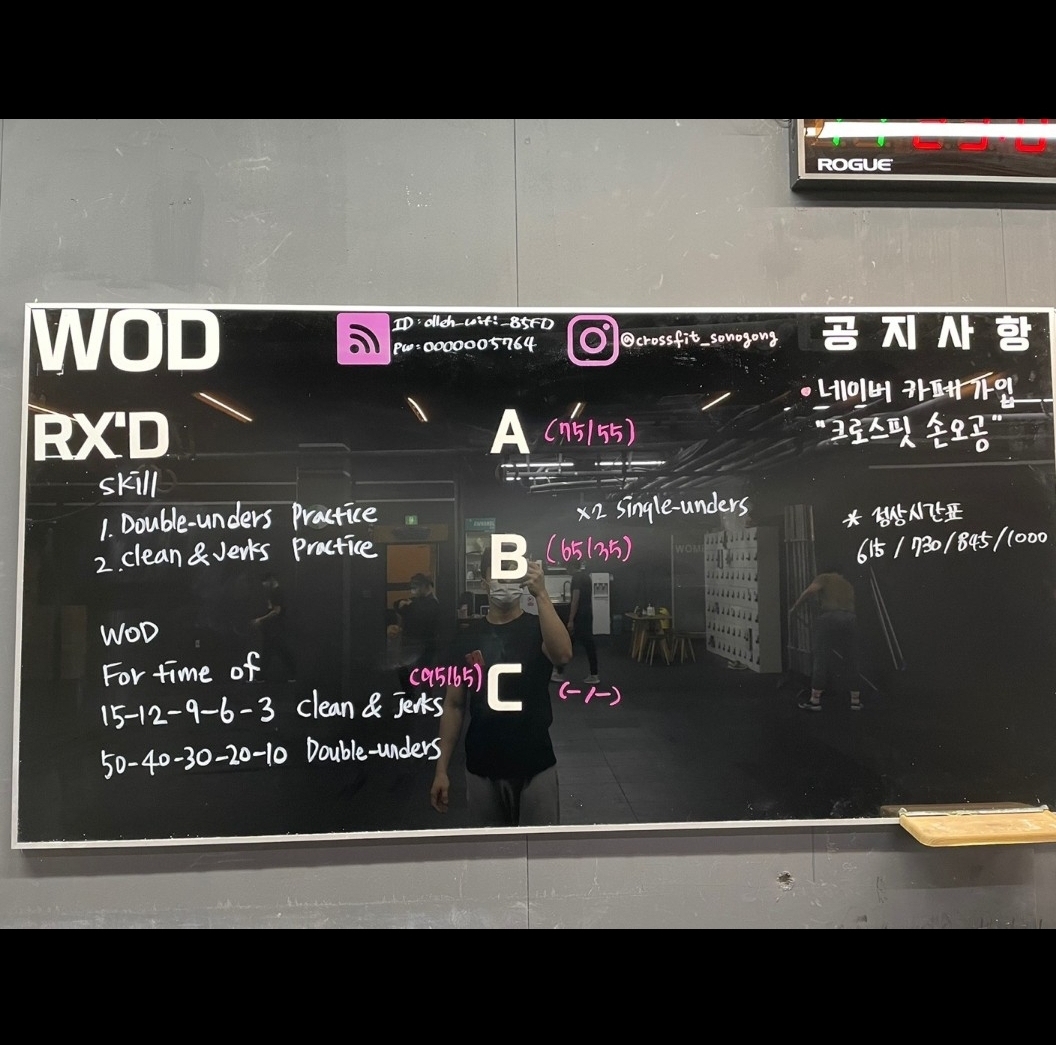 ROGUE
WOD
ID : olleh_wifi_B5FD
PW : 0000005764
@crossfit_sonogong
공지사항
• 네이버 카페 가입
"크로스핏 손오공"
* 정상시간표
615 / 730 / 845 / 1000
RX'D
Skill
1. Double-unders Practice
2. Clean & Jerks Practice
WOD
For time of
15-12-9-6-3 Clean & Jerks (95/65)
50-40-30-20-10 Double-unders
A (75/55)
x2 Single-unders
B (65/35)
C (-/-)